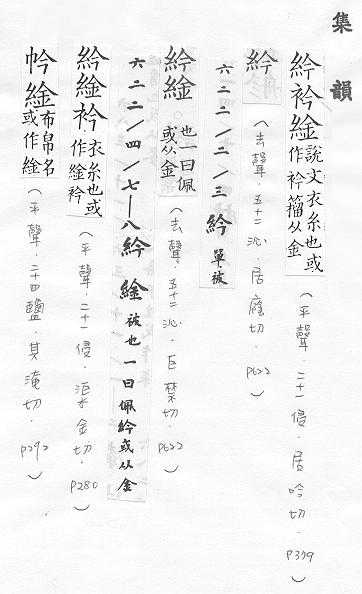 集韻
紟衿䋮說文衣系也或作衿䈜从金（平聲．二十一侵．居吟切．P279）
紟（去聲．五十二沁．居廕切．P622）
六二二／二／三紟單被
紟䋮也一曰佩或从金（去聲．五十二沁．巨禁切．P622）
六二二／四／七—八紟䋮被也一曰佩紟或从金
紟䋮衿衣系也或作䋮衿（平聲．二十一侵．渠金切．P280）
㡀布帛名或作䋮（平聲．二十四鹽．其淹切．P292）